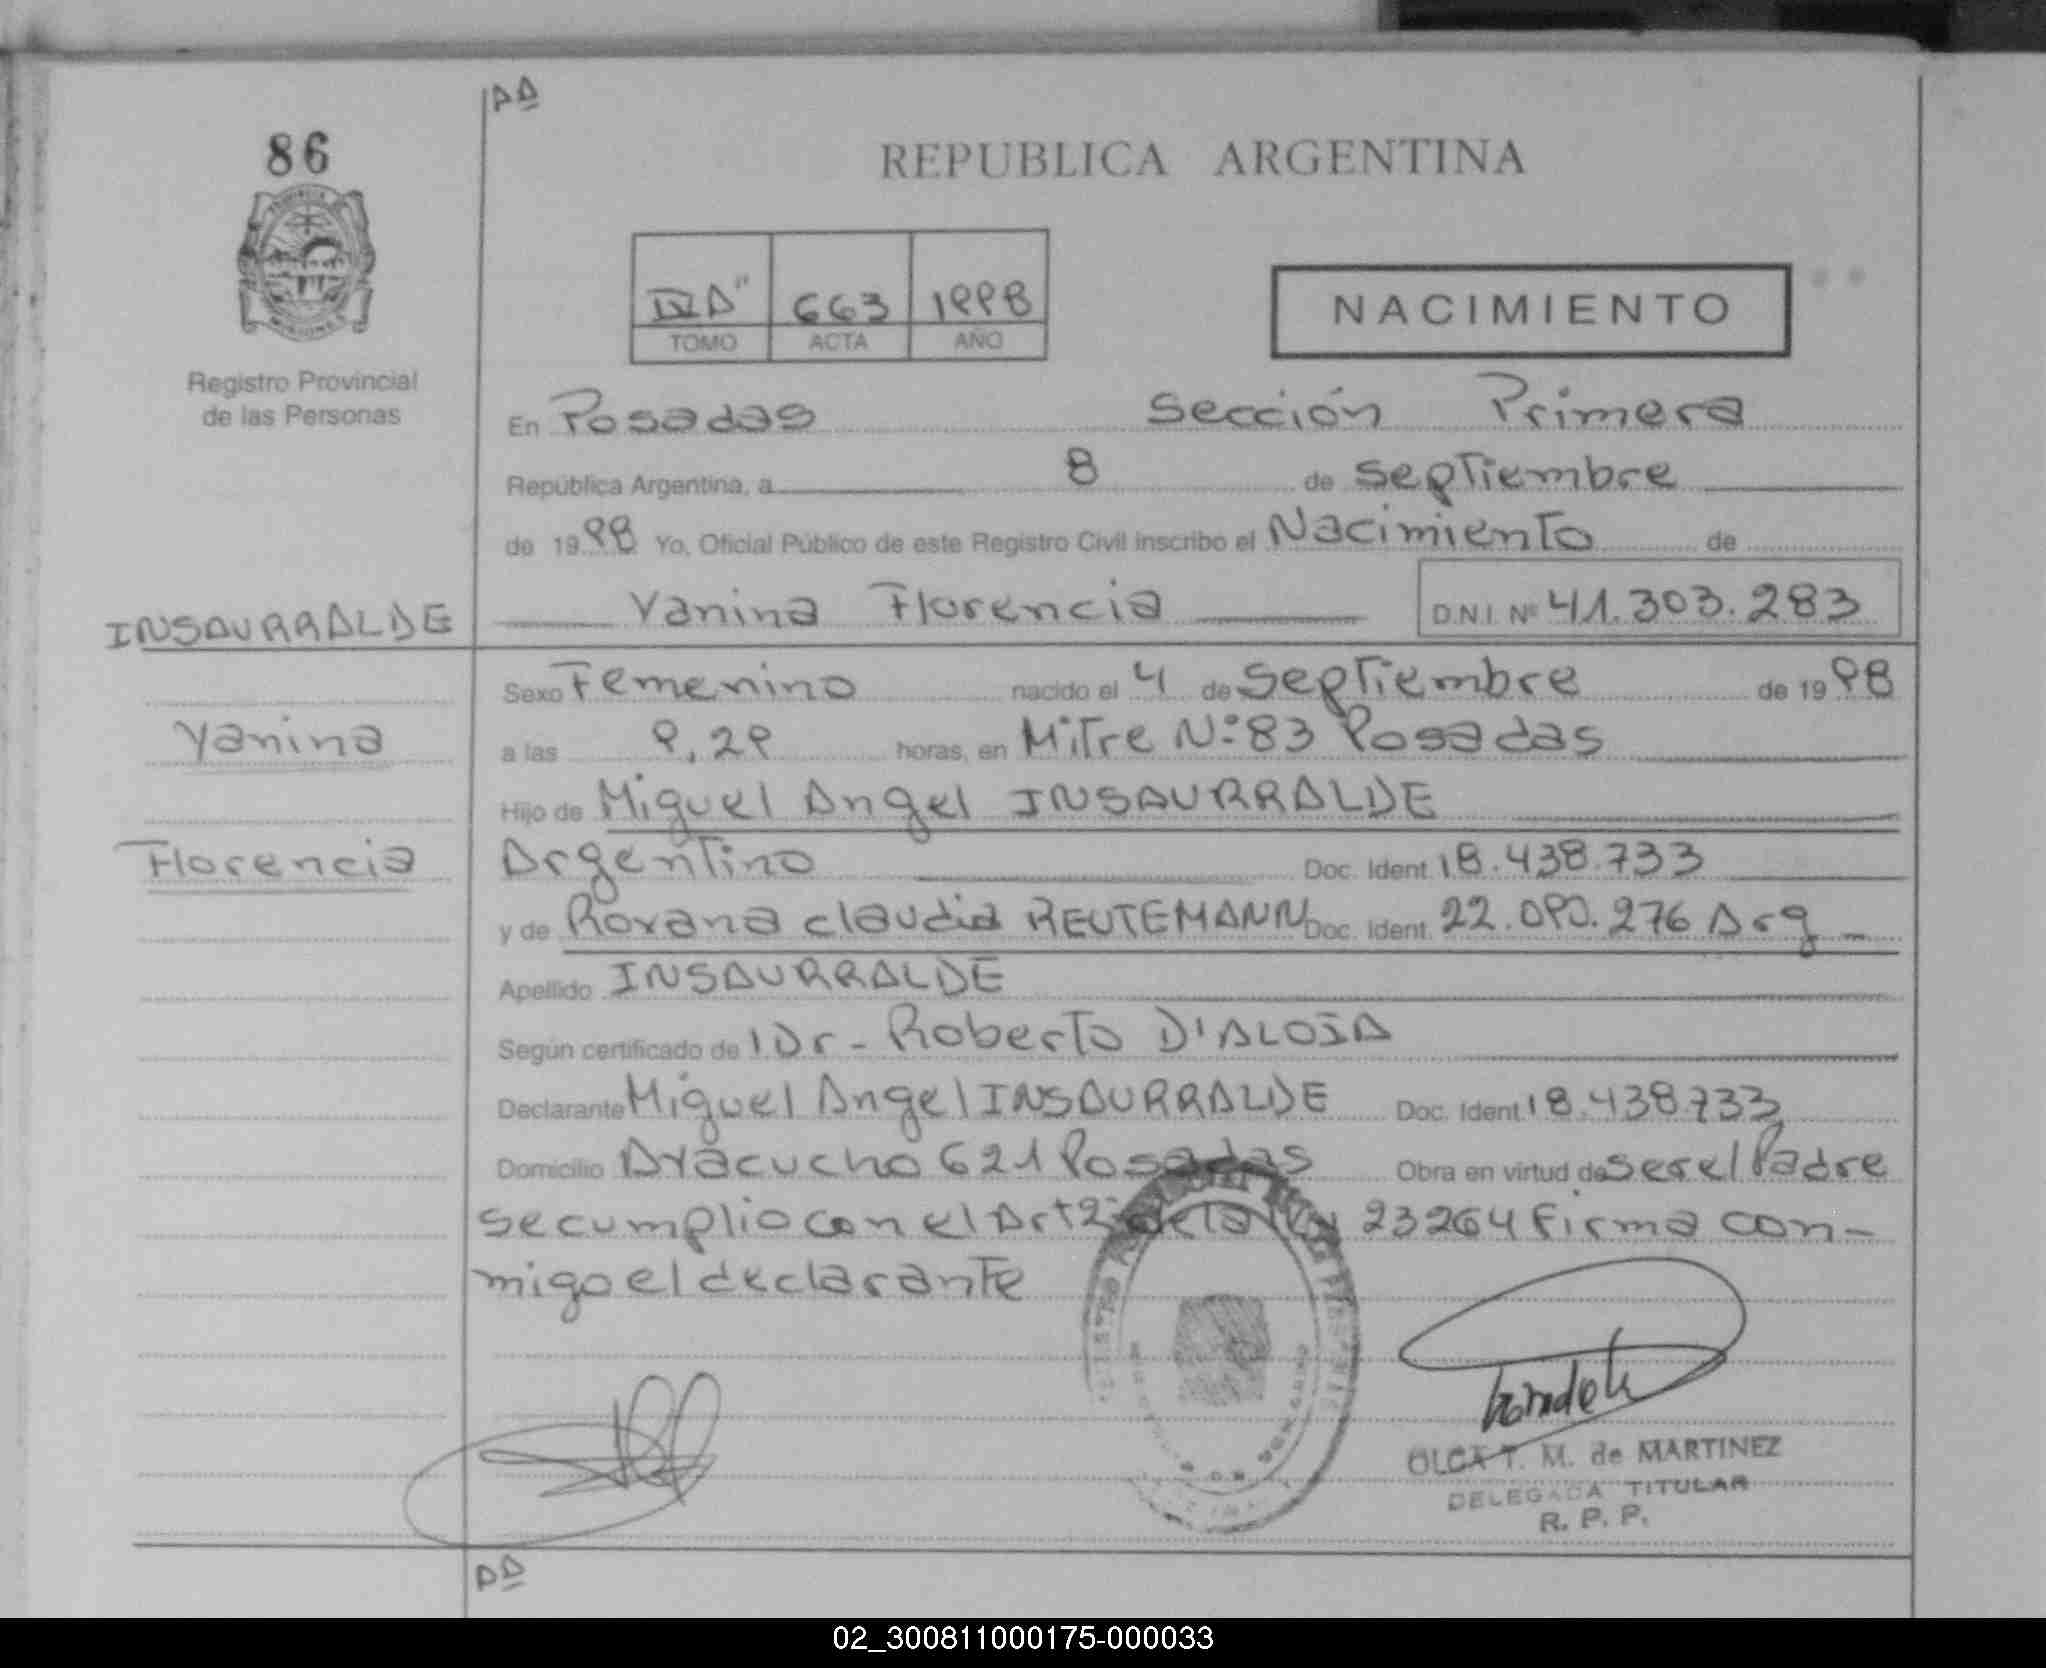 86
REPUBLICA ARGENTINA
IV A" 663 1998
TOMO ACTA AÑO
NACIMIENTO
Registro Provincial
de las Personas
En Posadas Sección Primera
República Argentina, a 8 de Septiembre
de 1998 Yo, Oficial Público de este Registro Civil inscribo el Nacimiento de
INSAURRALDE Yanina Florencia D.N.I. Nº 41.303.283
Sexo Femenino nacido el 4 de Septiembre de 1998
Yanina a las 9,29 horas, en Mitre Nº 83 Posadas
Hijo de Miguel Angel INSAURRALDE
Florencia Argentino Doc. Ident. 18.438.733
y de Roxana Claudia REUTEMANN Doc. Ident. 22.090.276 Arg
Apellido INSAURRALDE
Según certificado de l Dr - Roberto D'ALOIA
Declarante Miguel Angel INSAURRALDE Doc. Ident. 18.438.733
Domicilio Ayacucho 621 Posadas Obra en virtud de ser el Padre
se cumplio con el Art 2 de la 23264 Firma con-
migo el declarante
OLGA T. M. de MARTINEZ
DELEGADA TITULAR
R. P. P.
02_300811000175-000033